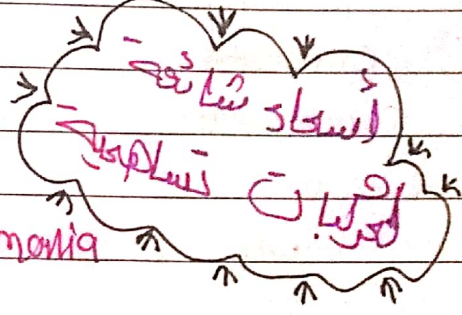 أسماء شائعة
لمركبات تساهمية
monia